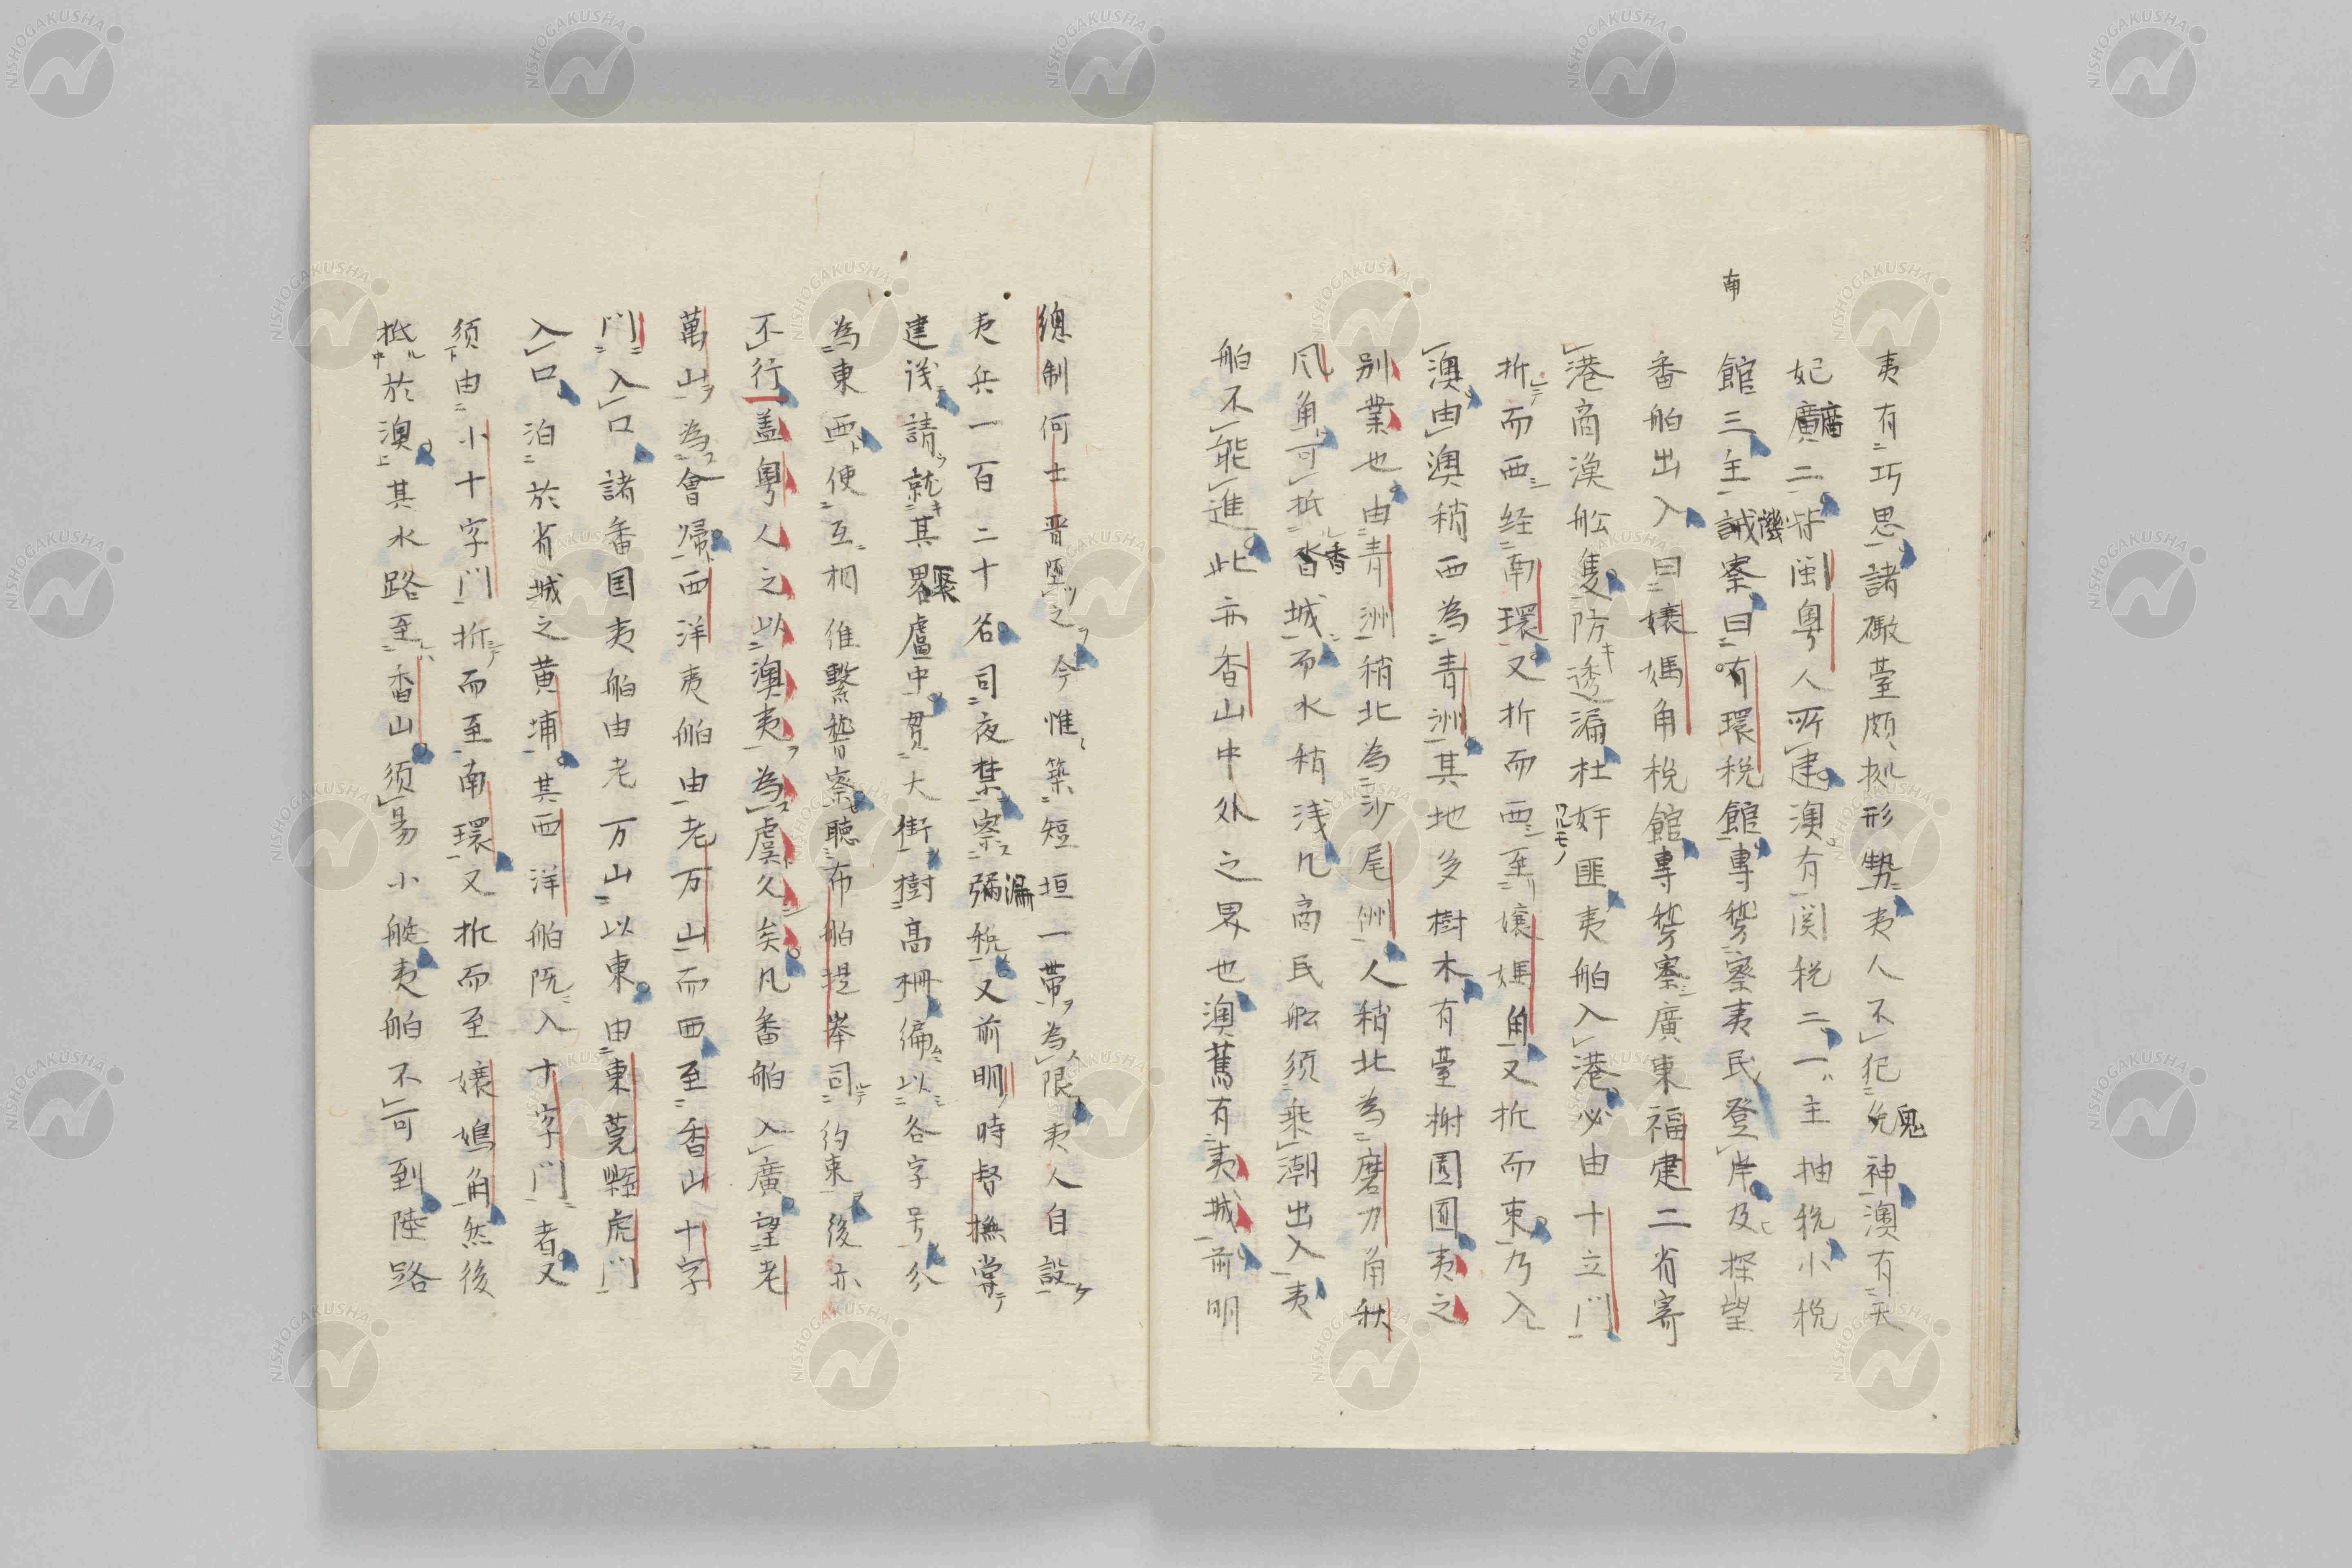 夷有巧思諸礮臺頗拠形勢夷人不犯鬼神澳有天
妃廣二皆閩粤人所建澳有関税二一主抽税小税
南
館三主譏察曰南環税館專稽察夷民登岸及探望
番舶出入曰娘媽角税館專稽察廣東福建二省寄
港商漁舩隻防透漏杜奸匪夷舶入港必由十字門
折而西経南環又折而西至娘媽角又折而東乃入
澳由澳稍西為青洲其地多樹木有臺榭園囿夷之
別業也由青洲稍北為沙尾洲人稍北為磨刀角秋
風角可抵香城而水稍浅凡商民舩須乗潮出入夷
舶不能進此亦香山中外之界也澳舊有夷城前明
總制何士晋堕之今惟築短垣一帯為限夷人自設
夷兵一百二十名司夜禁察漏税又前明時督撫嘗
建議請就其界廬中貫大街樹高柵編以各字号分
為東西使互相維繋稽察聴市舶提挙司約束後亦
不行盖粤人之以澳夷為虞久矣凡番舶入廣望老
萬山為會帰西洋夷舶由老万山而西至香山十字
門入口諸番国夷舶由老万山以東由東莞縣虎門
入口泊於省城之黄埔其西洋舶既入十字門者又
須由小十字門折而至南環又折而至娘媽角然後
抵於澳其水路至香山須易小艇夷舶不可到陸路